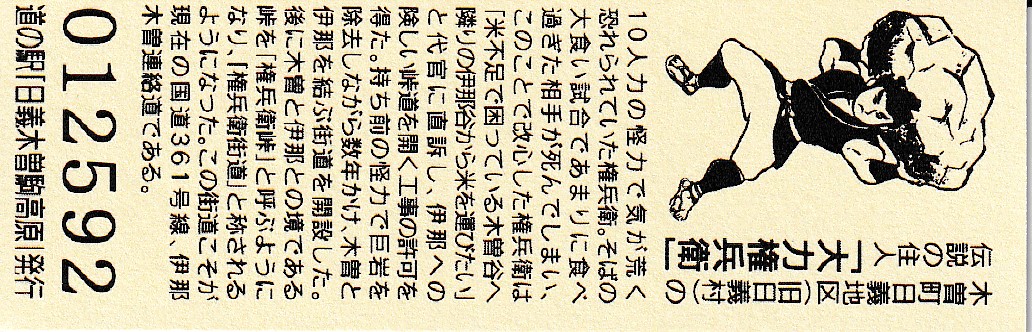 木曽町日義地区(旧日義村)の
伝説の住人「大力権兵衛」
10人力の怪力で気が荒く
恐れられていた権兵衛。そばの
大食い試合であまりに食べ
過ぎた相手が死んでしまい、
このことで改心した権兵衛は
「米不足で困っている木曽谷へ
隣りの伊那谷から米を運びたい」
と代官に直訴し、伊那への
険しい峠道を開く工事の許可を
得た。持ち前の怪力で巨岩を
除去しながら数年かけ、木曽と
伊那を結ぶ街道を開設した。
後に木曽と伊那との境である
峠を「権兵衛峠」と呼ぶように
なり、「権兵衛街道」と称される
ようになった。この街道こそが
現在の国道361号線、伊那
木曽連絡道である。
012592
道の駅「日義木曽駒高原」発行